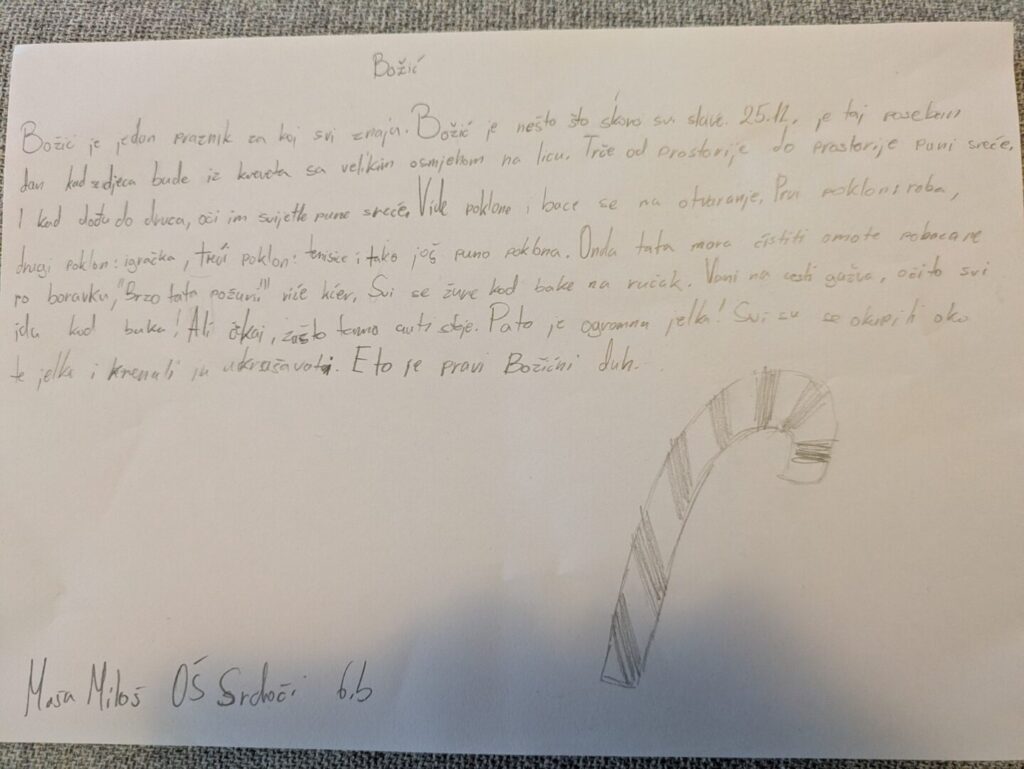 Božić
Božić je jedan praznik za koj svi znaju. Božić je nešto što skoro svi slave. 25.12. je taj poseban
dan kad djeca bude iz kreveta sa velikim osmjehom na licu. Trče od prostorije do prostorije puni sreće.
I kad dođu do drvca, oči im svijetle pune sreće. Vide poklone i bace se na otvaranje. Prvi poklon: roba,
drugi poklon: igračka, treći poklon: tenisice i tako još puno poklona. Onda tata mora čistiti omote pobacane
po boravku, "Brzo tata požuri!" viče kćer. Svi se žure kod bake na ručak. Vani na cesti gužva, očito svi
idu kod baka! Ali čekaj, zašto tamo auti stoje. Pa to je ogromna jelka! Svi su se okupili oko
te jelke i krenuli ju ukrašavati. Eto je pravi Božićni duh.
Maša Miloš OŠ Srdoči 6.b